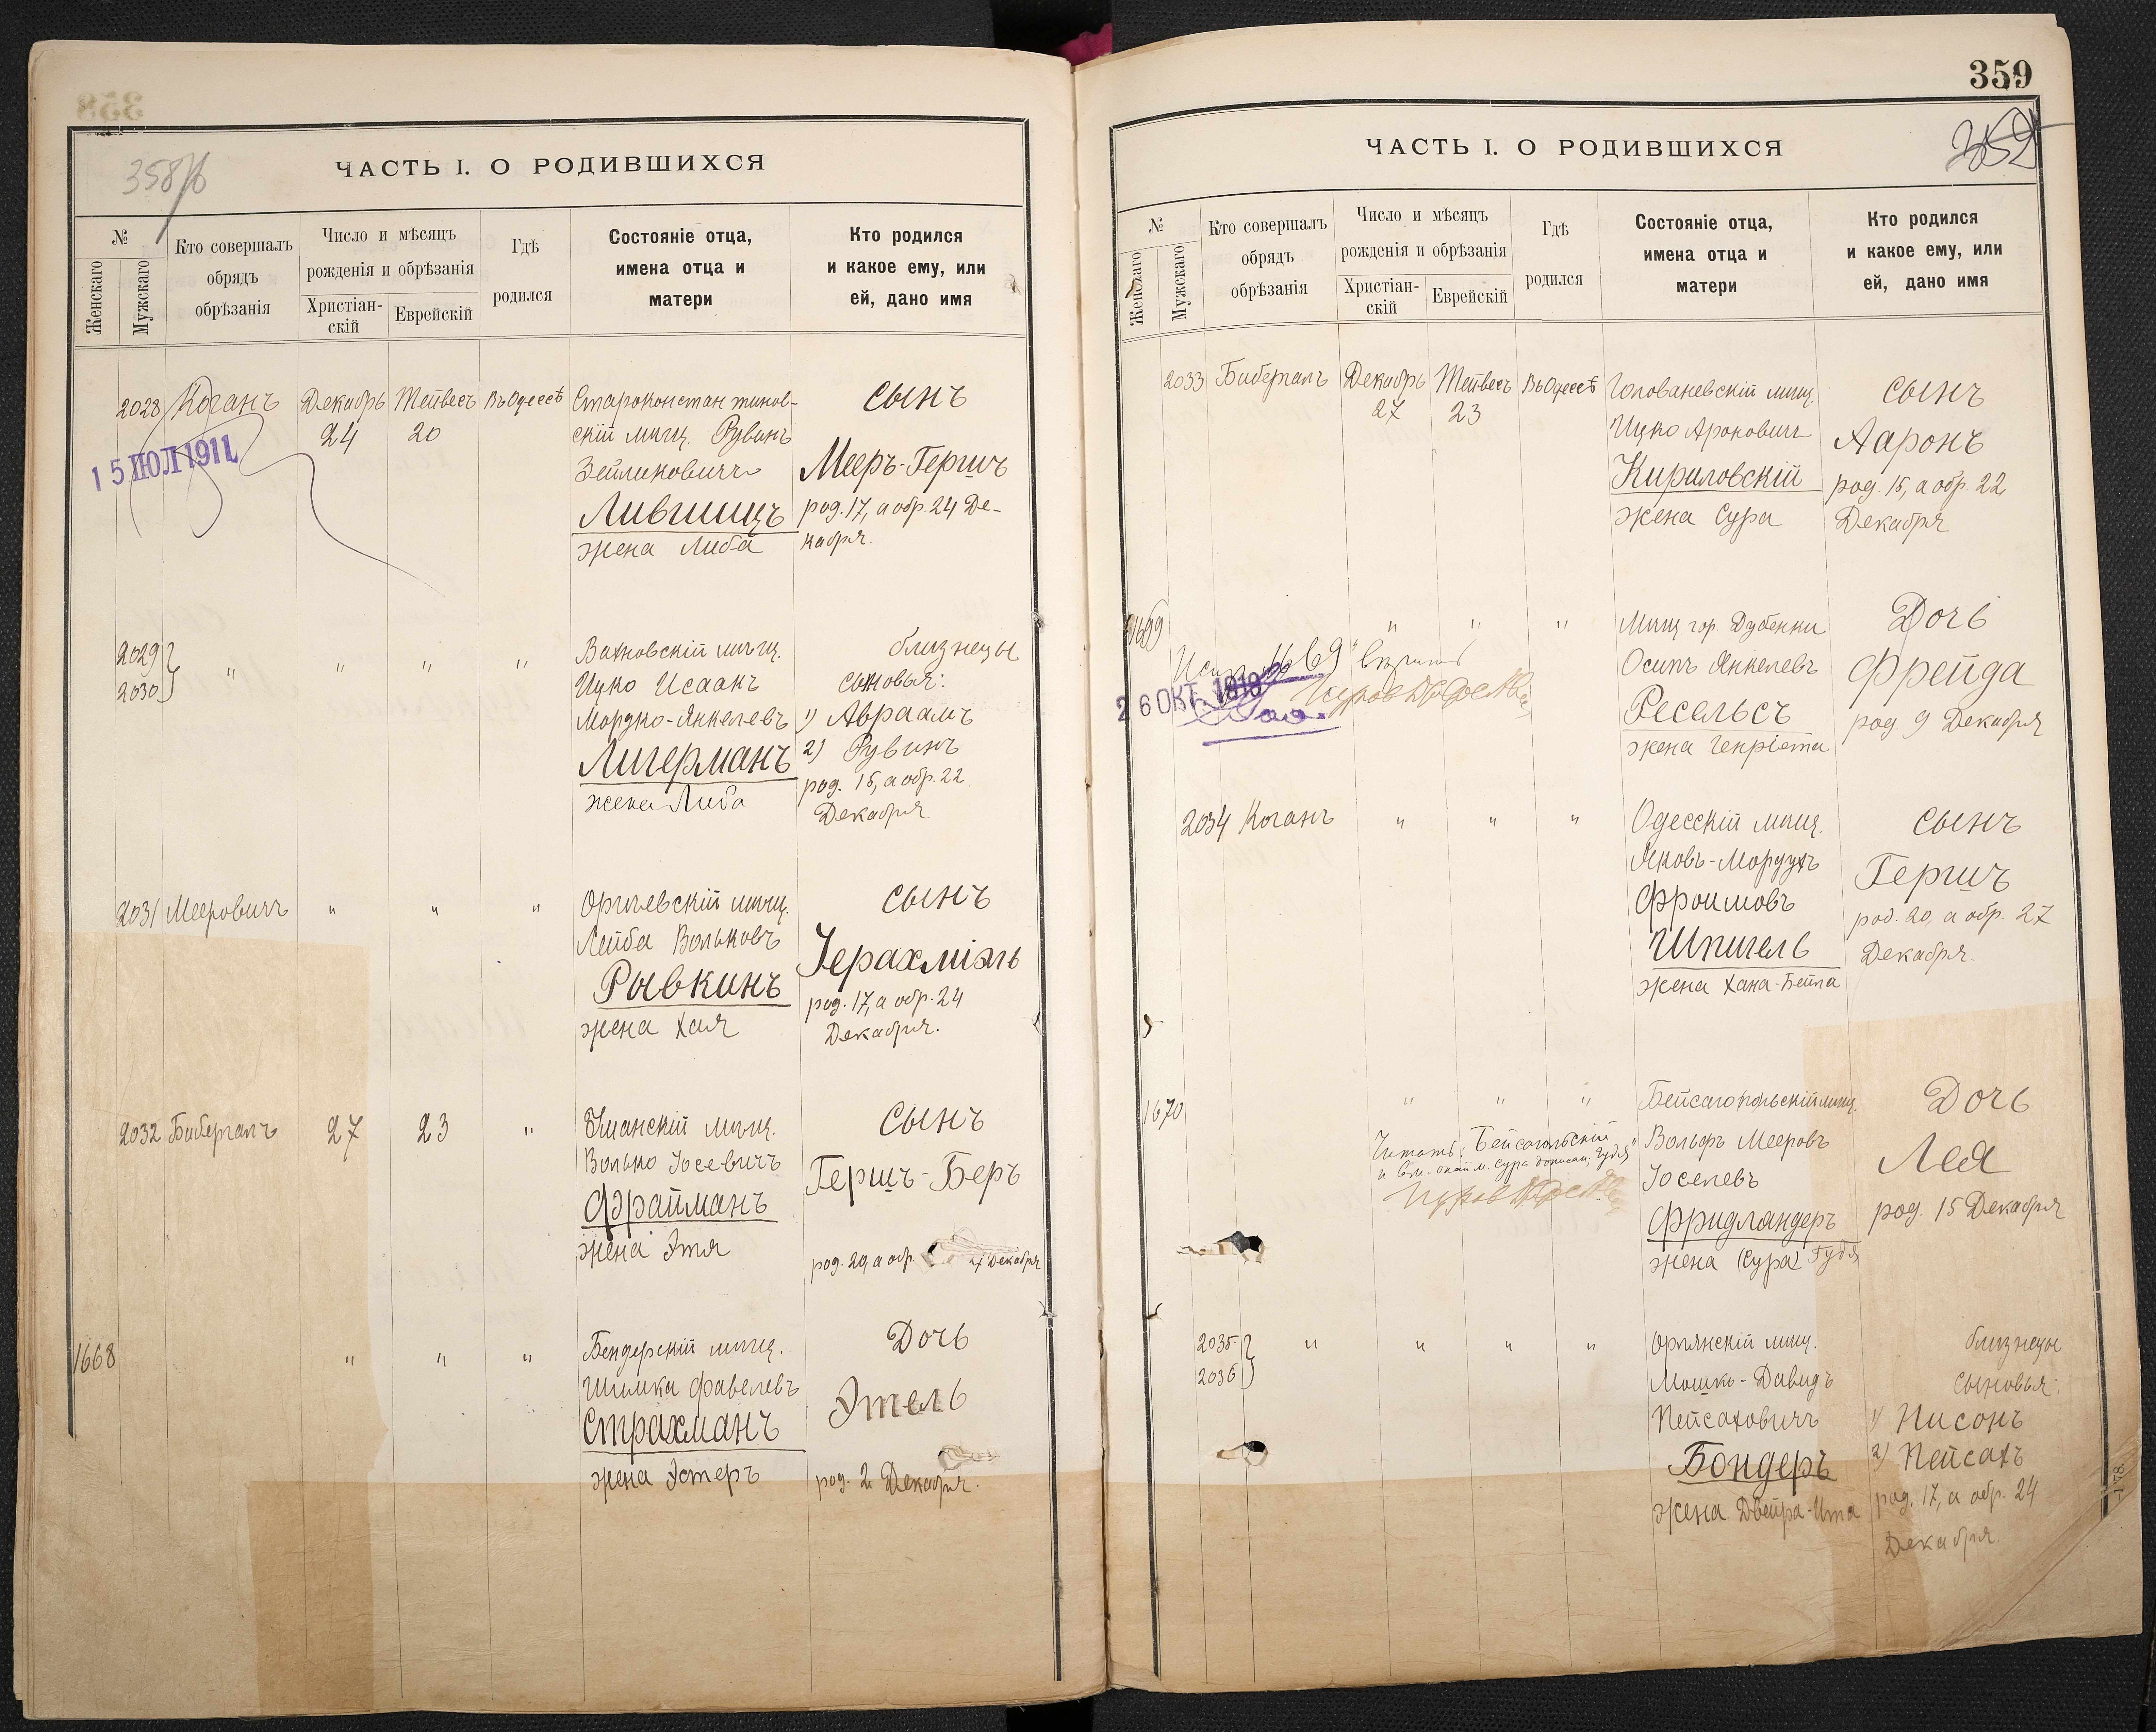 358
ЧАСТЬ I. О РОДИВШИХСЯ
№
Женскаго
Мужскаго
Кто совершалъ
обрядъ
обрѣзанія
Число и мѣсяцъ
рожденія и обрѣзанія
Христіан-
скій
Еврейскій
Гдѣ
родился
Состояніе отца,
имена отца и
матери
Кто родился
и какое ему, или
ей, дано имя
2028
Коганъ
Декабрь
24
Тейвесъ
20
Въ Одессѣ
Староконстантинов-
скій мѣщ. Рувинъ
Зейликовичъ
Лившицъ
жена Либа
сынъ
Мееръ-Гершъ
род. 17, а обр. 24 Де-
кабря.
15 ІЮЛ 1911
2029
2030
"
"
"
"
Вахновскій мѣщ.
Ицко Исаакъ
Мордко-Янкелевъ
Лигерманъ
жена Либа
близнецы
сыновья:
1) Авраамъ
2) Рувинъ
род. 15, а обр. 22
Декабря
2031
Мееровичъ
"
"
"
Оргѣевскій мѣщ.
Лейба Вольковъ
Рывкинъ
жена Хая
сынъ
Іерахміэль
род. 17, а обр. 24
Декабря.
2032
Бибергалъ
27
23
"
Уманскій мѣщ.
Волько Іосевичъ
Фрайманъ
жена Этя
сынъ
Гершъ-Беръ
род. 20, а обр.
27 Декабря
1668
"
"
"
Бендерскій мѣщ.
Шимка Фавелевъ
Страхманъ
жена Эстеръ
Дочь
Этель
род. 2 Декабря.
359
ЧАСТЬ I. О РОДИВШИХСЯ
№
Женскаго
Мужскаго
Кто совершалъ
обрядъ
обрѣзанія
Число и мѣсяцъ
рожденія и обрѣзанія
Христіан-
скій
Еврейскій
Гдѣ
родился
Состояніе отца,
имена отца и
матери
Кто родился
и какое ему, или
ей, дано имя
2033
Бибергалъ
Декабрь
27
Тейвесъ
23
Въ Одессѣ
Голованевскій мѣщ.
Ицко Ароновичъ
Кириловскій
жена Сура
сынъ
Ааронъ
род. 15, а обр. 22
Декабря
"
"
"
Мѣщ. гор. Дубенки
Осипъ Янкелевъ
Ресельсъ
жена Генріета
Дочь
Фрейда
род. 9 Декабря
26 ОКТ.
2034
Коганъ
"
"
"
Одесскій мѣщ.
Яковъ-Мордухъ
Фроимовъ
Шпигель
жена Хана-Бейла
сынъ
Гершъ
род. 20, а обр. 27
Декабря.
1670
"
"
"
Читать: Бейсагольскій
Вольфъ Мееровъ
Іоселевъ
Фридландеръ
жена (Сура) Гудя
Дочь
Лея
род. 15 Декабря
2035
2036
"
"
"
"
Оргѣянскій мѣщ.
Мошко-Давидъ
Пейсаховичъ
Бондеръ
жена Двейра-Ита
близнецы
сыновья:
1) Нисонъ
2) Пейсахъ
род. 17, а обр. 24
Декабря.